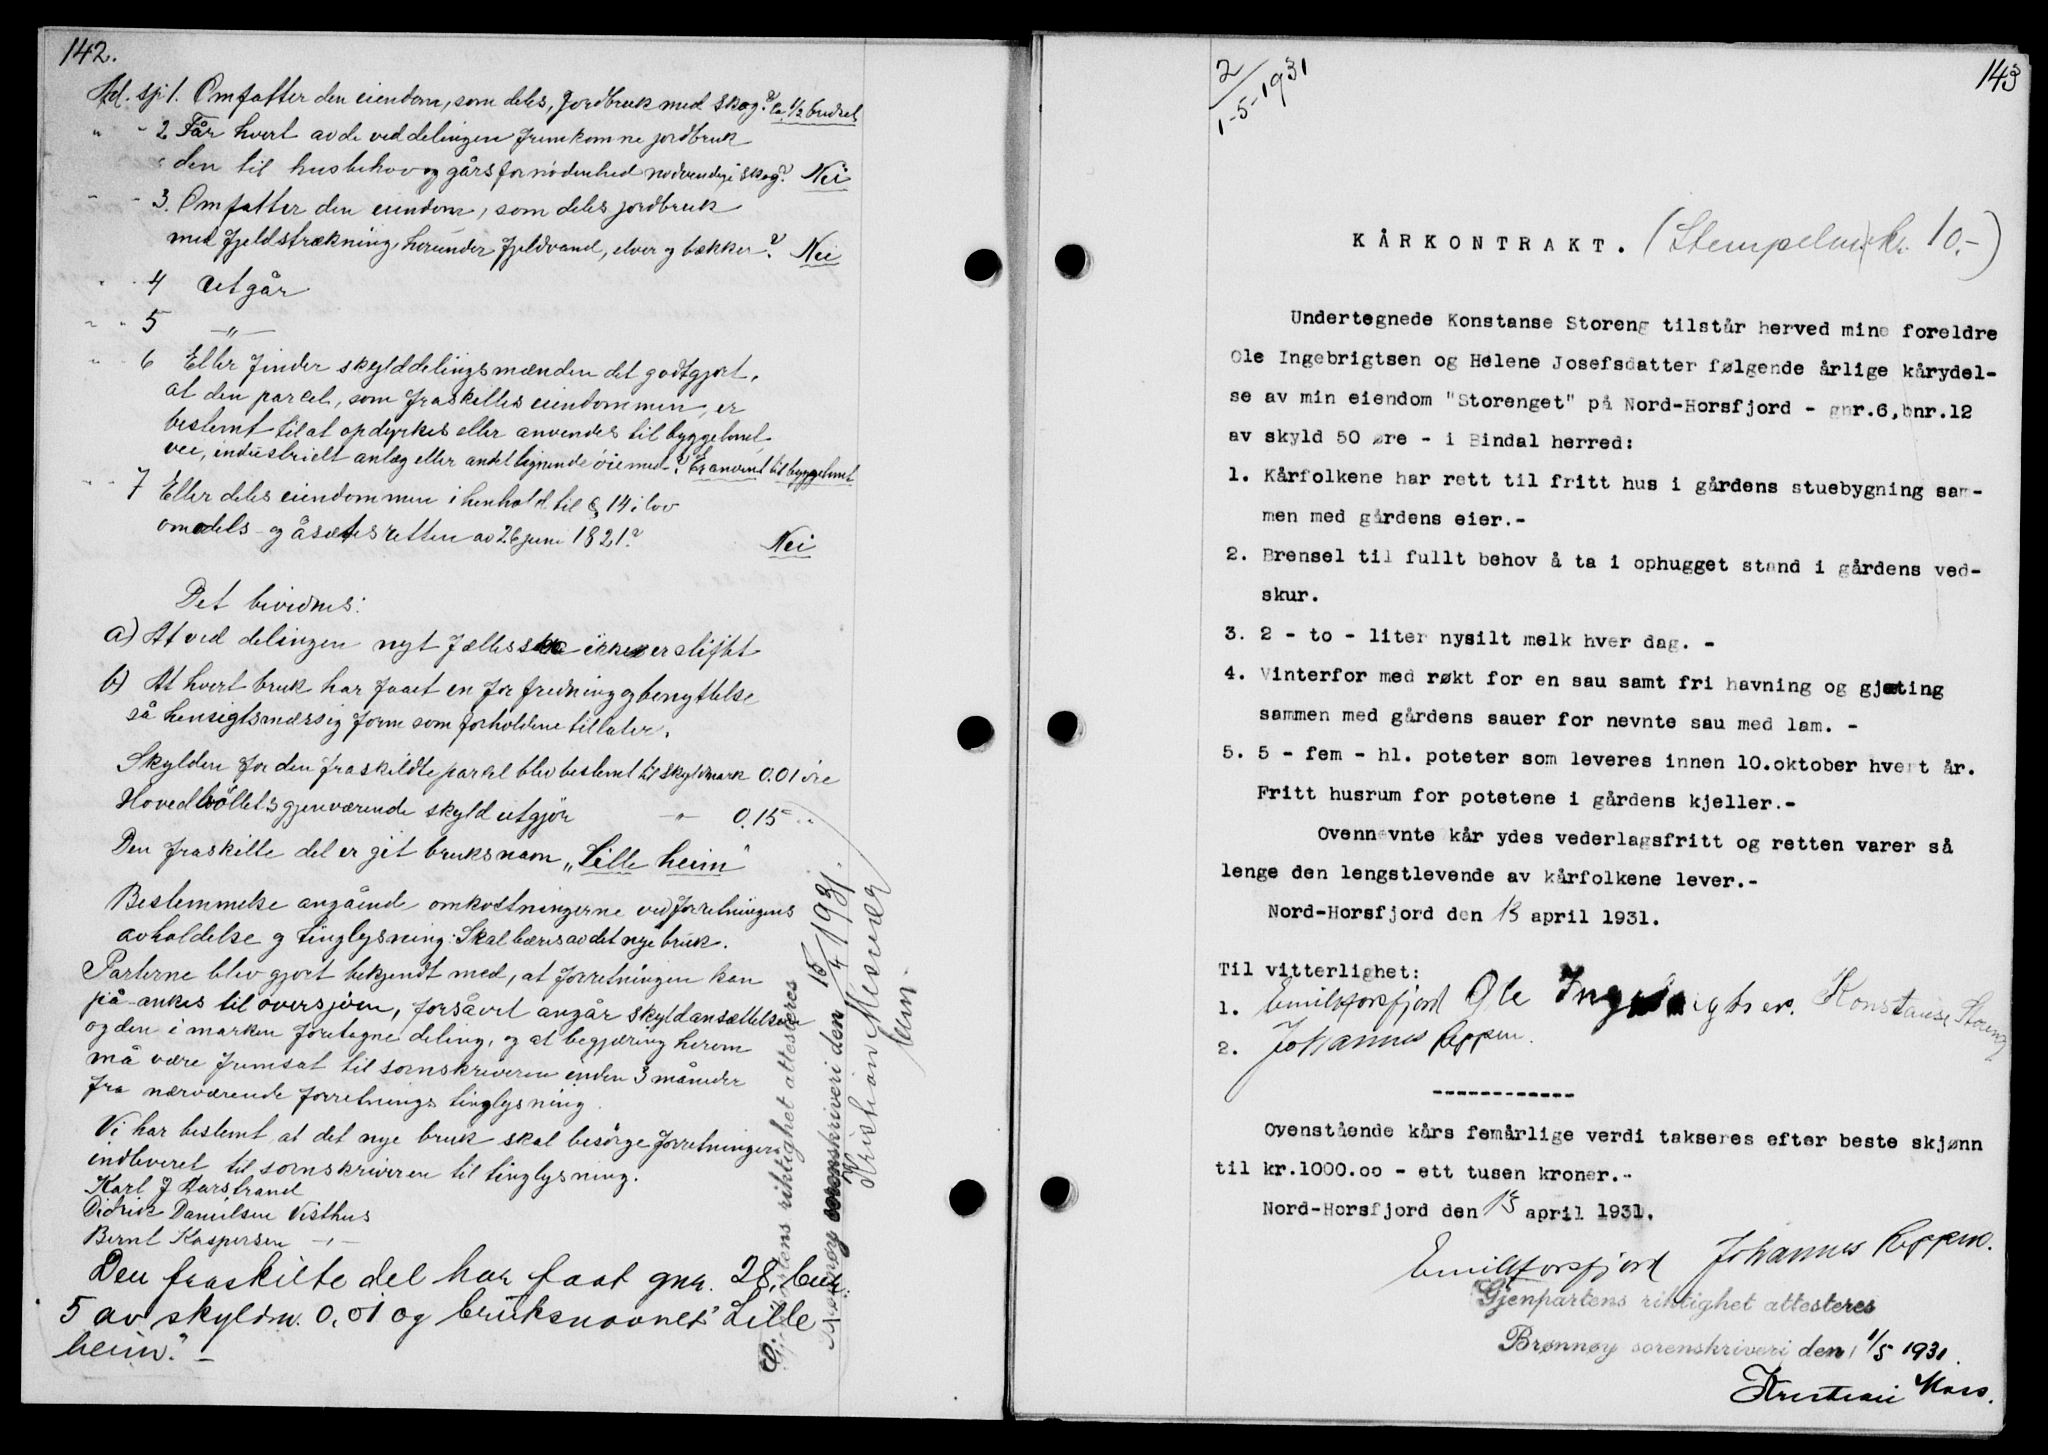 142.
Ad. sp. 1. Omfatter den eiendom, som deles, Jordbruk med skog? Ca. 1/2 bruket
" - 2 Får hvert av de ved delingen fremkomne jordbruk
den til husbehov og gårsfornødenhed nødvendige skog? Nei
" - 3. Omfatter den eiendom, som deles jordbruk
med fjeldstrækning, herunder fjeldvand, elver og bækker? Nei
" - 4 Utgår
" - 5 —"—
" - 6 Eller finder skylddelingsmænden det godtgjort,
at den parcel, som fraskilles eiendommen, er
bestemt til at opdyrkes eller anvendes til byggetomt,
vei, industrielt anlæg eller andet lignende øiemed? Er anvent til byggetomt
" - 7 Eller deles eiendommen i henhold til § 14 i lov
om odels- og åsætesretten av 26 juni 1821? Nei
Det bevidnes:
a) At ved delingen nyt fællesskap ikke er stiftet
b) At hvert bruk har faaet en for fredning og benyttelse
så hensigtsmæssig form som forholdene tillater.
Skylden for den fraskildte parcel blev bestemt til skyldmark 0.01 øre
Hovedbøllets gjenværende skyld utgjør —"— 0,15 "
Den fraskilte del er git bruksnavn „Lille heim"
Bestemmelse angående omkostningerne ved forretningens
avholdelse og tinglysning: Skal bæres av det nye bruk.
Parterne blev gjort bekjendt med, at forretningen kan
på-ankes til overskjøn, forsåvit angår skyldansættelsen
og den i marken foretagne deling, og at begjæring herom
må være fremsat til sornskriveren enden 3 måneder
fra nærværende forretnings tinglysning.
Vi har bestemt at det nye bruk skal besørge forretningen
indleveret til sornskriveren til tinglysning.
Karl J Harstrand
Didrik Danielsen Visthus
Bernt Kaspersen —"—
Den fraskilte del har faat gnr. 28, bnr.
5 av skyldm. 0,01 og bruksnavnet "Lille
heim". —
Gjenpartens riktighet attesteres
Brønnøy sorenskriveri den 15/4 1931.
Kristian Mesnær
2/1-5-1931
143
KÅRKONTRAKT. (Stempelm. kr. 10.-)
Undertegnede Konstanse Storeng tilstår herved mine foreldre
Ole Ingebrigtsen og Helene Josefsdatter følgende årlige kårydel-
se av min eiendom "Storenget" på Nord-Horsfjord - gnr.6, bnr.12
av skyld 50 øre - i Bindal herred:
1. Kårfolkene har rett til fritt hus i gårdens stuebygning sam-
men med gårdens eier.-
2. Brensel til fullt behov å ta i ophugget stand i gårdens ved-
skur.
3. 2 - to - liter nysilt melk hver dag. -
4. Vinterfor med røkt for en sau samt fri havning og gjæting
sammen med gårdens sauer for nevnte sau med lam. -
5. 5 - fem - hl. poteter som leveres innen 10.oktober hvert år.
Fritt husrum for potetene i gårdens kjeller.-
Ovennevnte kår ydes vederlagsfritt og retten varer så
lenge den lengstlevende av kårfolkene lever.-
Nord-Horsfjord den 13 april 1931.
Til vitterlighet:
1. Emil Horsfjord Ole Ingebrigtsen. Konstanse Storeng
2. Johannes Reppen.
------------
Ovenstående kårs femårlige verdi takseres efter beste skjønn
til kr.1000.oo - ett tusen kroner.-
Nord-Horsfjord den 13 april 1931.
Emil Horsfjord Johannes Reppen.
Gjenpartens riktighet attesteres
Brønnøy sorenskriveri den 1/5 1931.
Kristian Mesn.